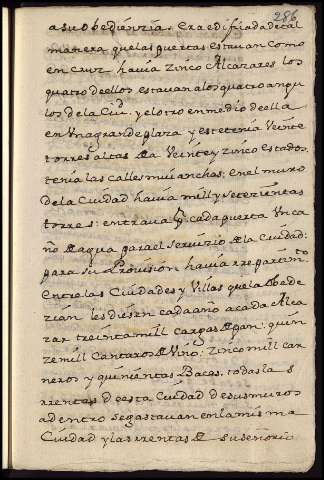 286
a su obediençia. Era edifiada de tal
manera que las puertas estauan como
en cruz hauia zinco Alcazares los
quatro dellos estauan a los quatro angu
los de la Ciud. y el otro en medio de ella
en Vna grande plaza y este tenia Veinte
torres altas de a Veinte y zinco estados
tenia las calles mui anchas; en el muro
de la Ciudad hauia mill y seteziẽntas
torres: entraua por cada puerta Vn ca
ño de agua para el seruizio de la Ciudad:
para su Prouision hauia rrepartim.to
Entre las Ciudades y Villas que la obede
zian les diesen cada año a cada Alca
zar treinta mill cargas de pan: quin
ze mill Cantaros de Vino: zinco mill car
neros y quinientas Bacas. todas la s
rrentas de esta Ciudad de sus muros
adentro se gastauan en la mis ma
Ciudad y las rrentas de su señorio